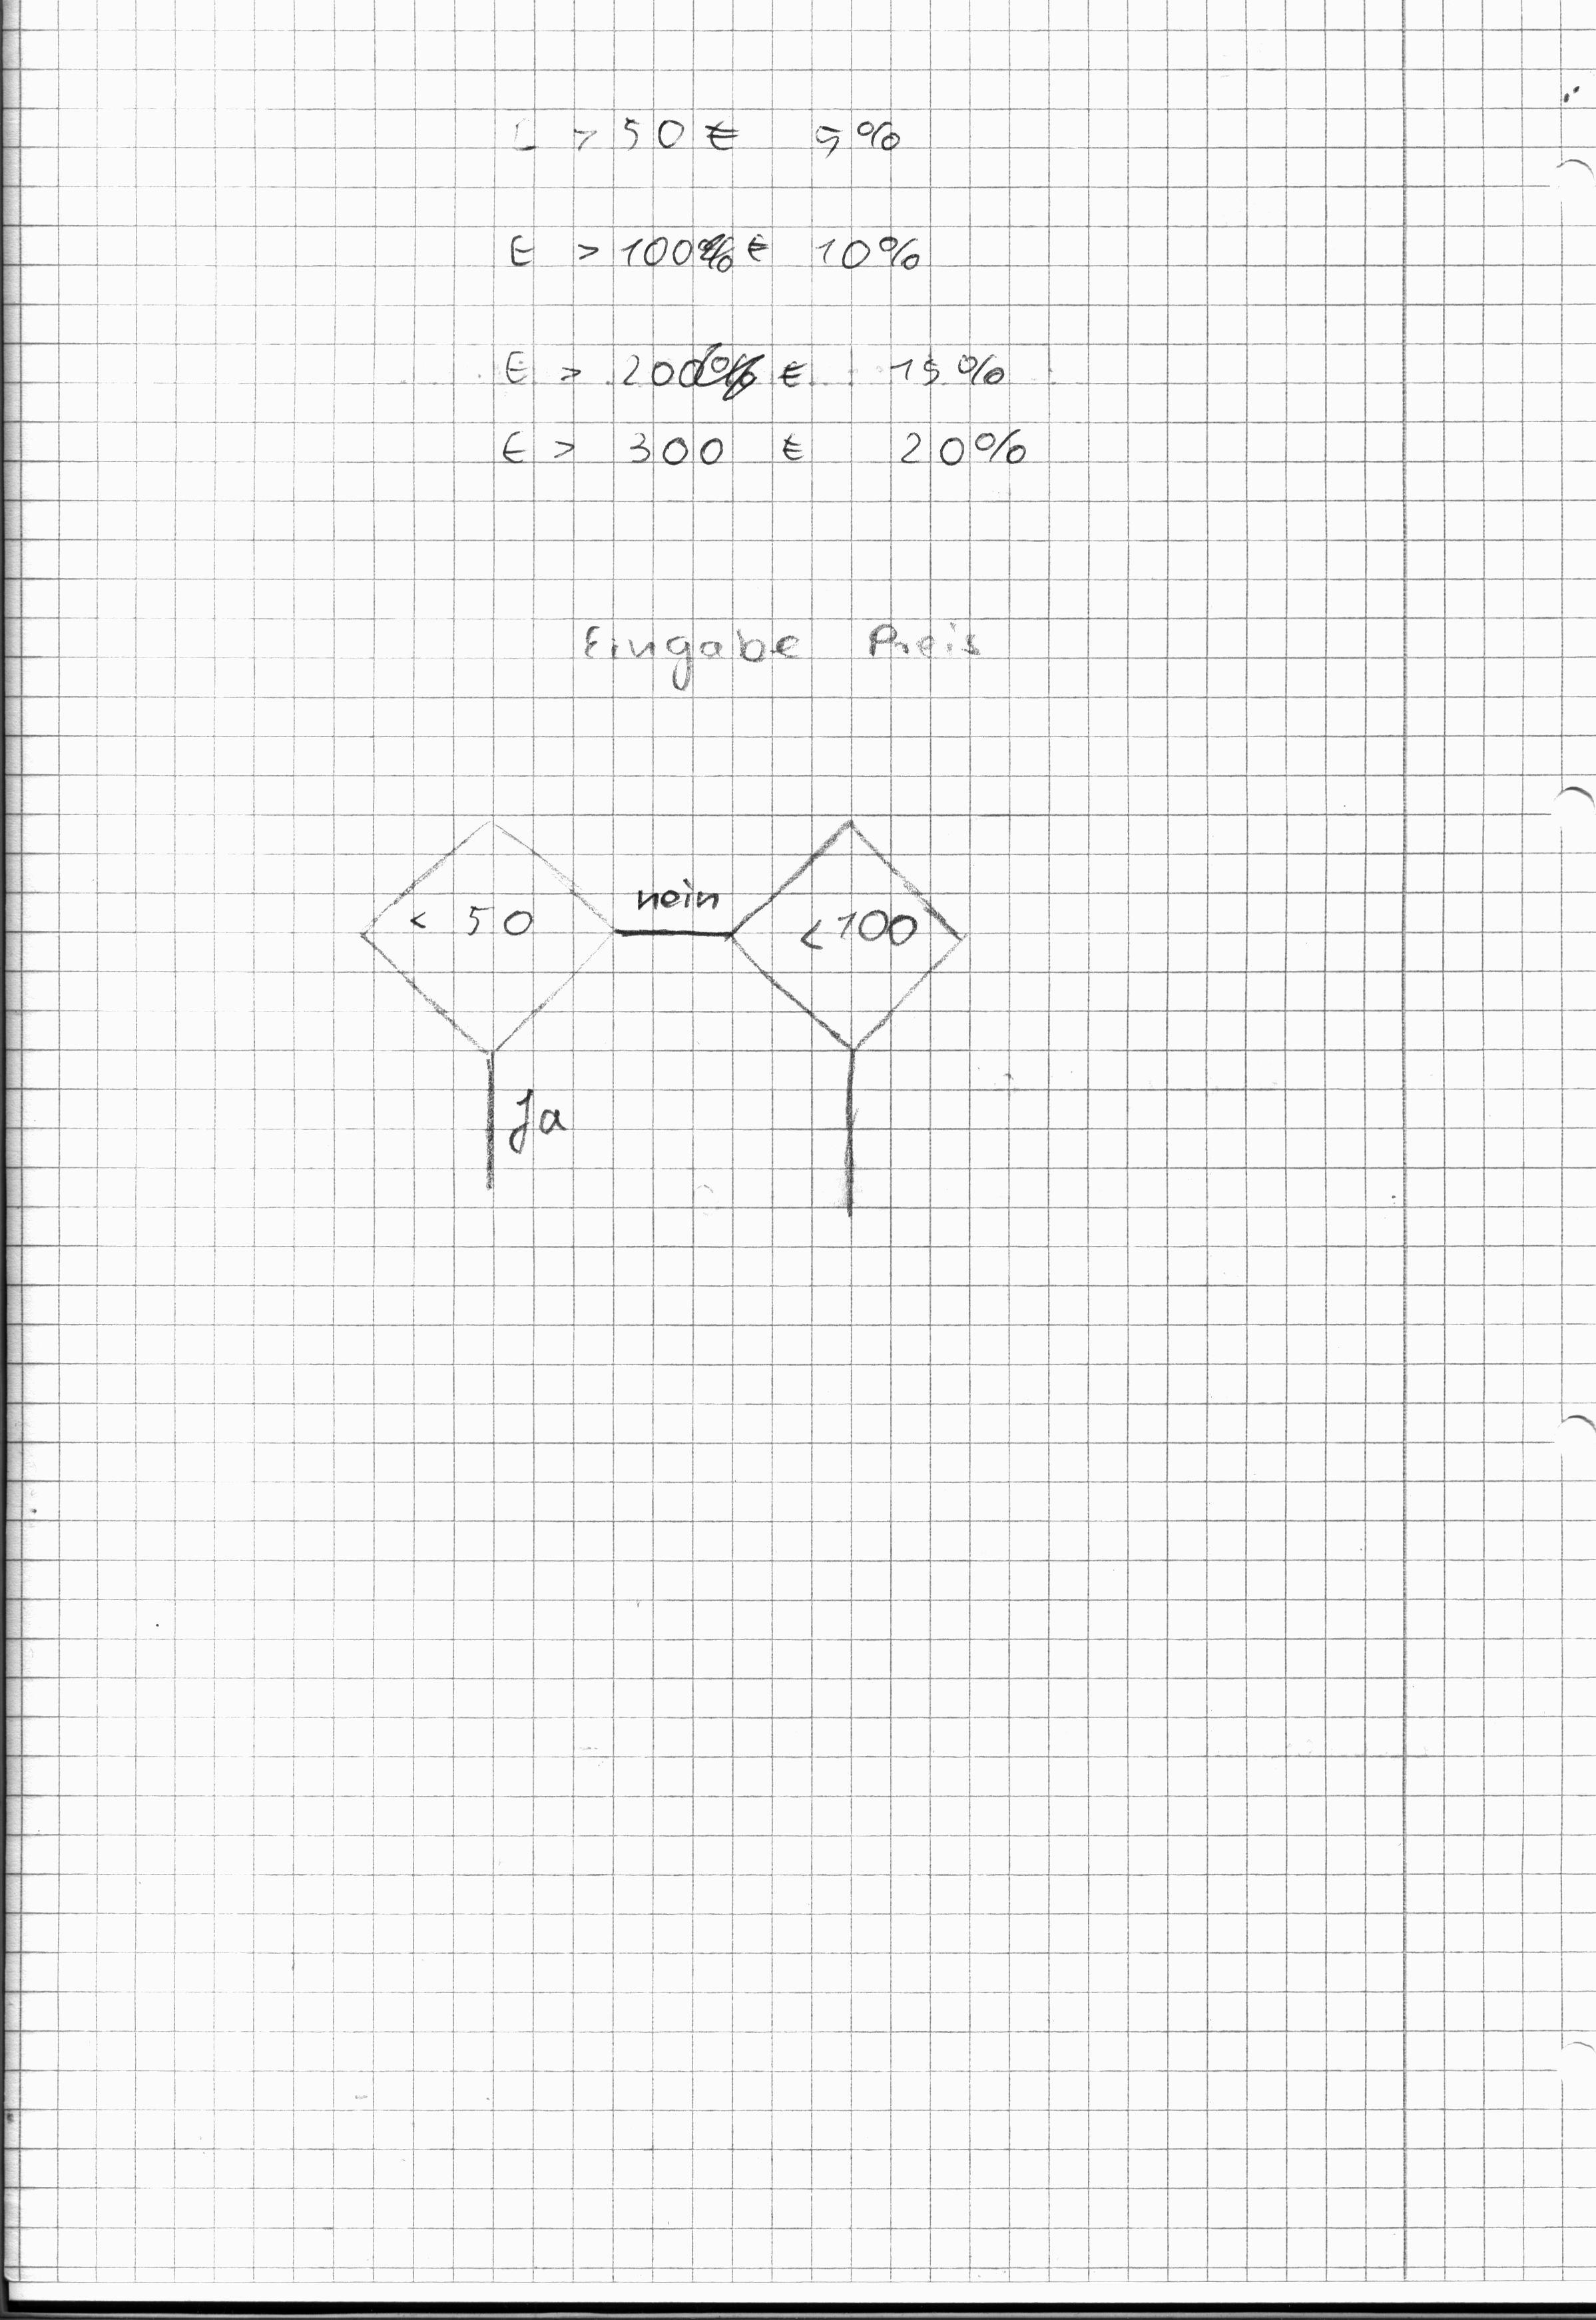 E > 50 € 5%
E > 100 € 10%
E > 200 € 15%
E > 300 € 20%
Eingabe Preis
< 50
nein
< 100
Ja